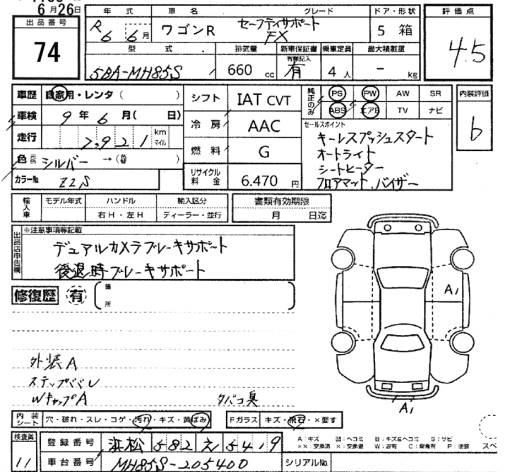 6月26日
出品番号
74
年式 車名 グレード ドア・形状
R6 6月 ワゴンR セーフティサポート FX 5 箱
型式 排気量 新車保証書 乗車定員 最大積載量
5BA-MH85S 660 cc 有 4 人 - kg
評価点
4.5
車歴 自家用・レンタ( )
車検 9年 6月( 日)
走行 7,921 km マイル
色 シルバー →(替 )
カラーNo. ZZS
シフト IAT CVT
冷房 AAC
燃料 G
リサイクル料金 6.470 円
純正のみ PS PW AW SR
ABS エアB TV ナビ
セールスポイント
キーレスプッシュスタート
オートライト
シートヒーター
フロアマット,バイザー
内装評価
b
輸入車 モデル年式 ハンドル 輸入区分 書類有効期限
右H・左H ディーラー・並行 月 日迄
出品店申告欄
※注意事項等記載
デュアルカメラブレーキサポート
後退時ブレーキサポート
修復歴 有 箇所
A1
外装A
ステップバレ
WキャップA
タバコ臭
A1
内装シート 穴・破れ・スレ・コゲ・汚れ・キズ・黄ばみ Fガラス キズ・飛石・×要す
検査員
11
登録番号 浜松 582 え 5419
車台番号 MH85S-205400
シリアルNo.